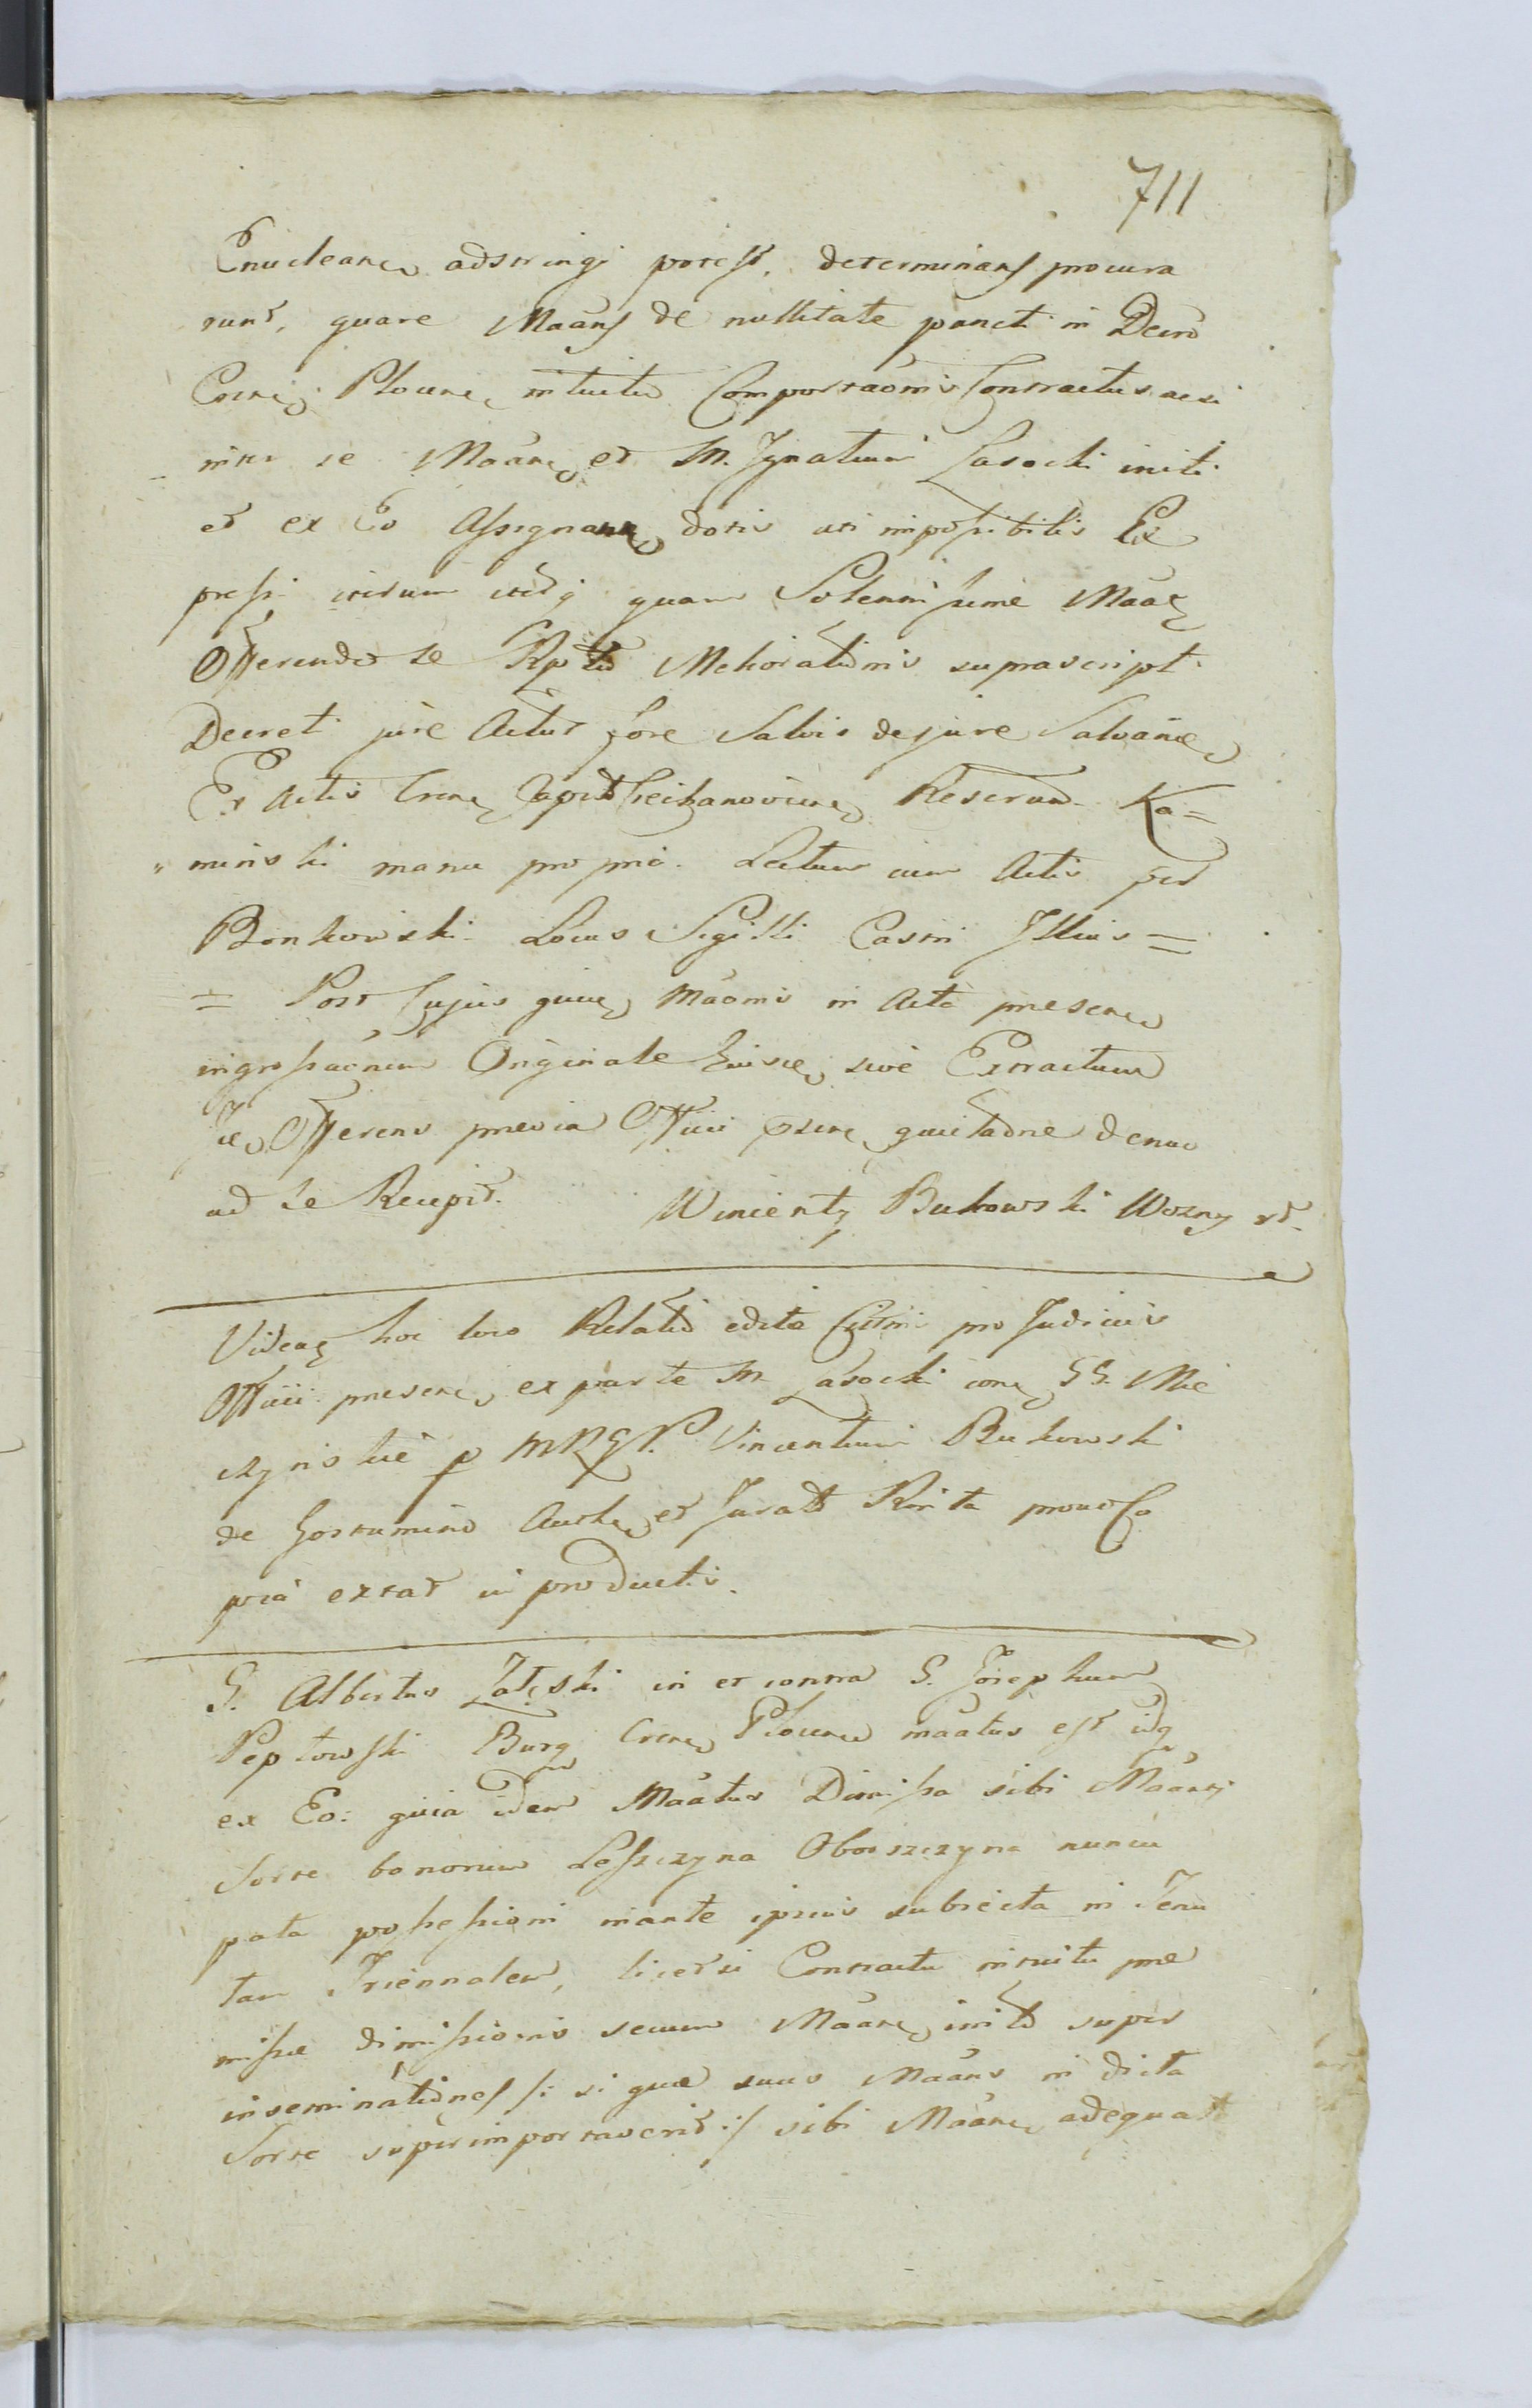 711
Enucleare adstringi potest, determinans procura
runt, quare Maans de nullitate puncti in Decro
Plocen intuitu Comportaonis Contractus acsi
inter se Maane et M. Ignatium Lasocki initi
et ex Eo Assignane dotis uti impossibilis Ex
pressi iterum quam Solennissime Maag
Offerendo se Melioraonis suprascripti
Decreti jure Actut fore Salvis de jure Salvane
Ex Actis Crene Capit Ciechanovien Reserva Ka=
minski manu propria. Lectum cum Actis per
Bonkowski Locus Sigilli Castri Illius =
= Post Cujus quine Maonis in Actä presene
ingrossaonem Originale Ejusde sive Extractum
Offerens previa Officii psene quietaone denuo
ad se Recepit. Wincenty Bukowski Wozny
Videag hoc loco Relatio edita Citnis pro Judiciis
Officii presene ex parte M Lasocki cone GG. Mie
czynskie p MRGP. Vincentium Bukowski
de Gostumino Authe et Jurato Rbita prout Co
pia extat in productis.
G. Albertus Załęski in et contra G. Josephum
Peptowski Burg Crene Plocene maatus est idq
ex Eo: quia idem Maatus Dimissa sibi Maanti
Sorte bonorum Leszczyna Oborszczyna nuncu
pata possessioni inante ipsius subiecta in Tenu
tam Triennalem, licet si Contractu intuitu pre
missae dimissionis secum Maane inito super
inseminationes /: si quae suus Maans in dicta
Sorte superimportaverit :/ sibi Maane adequate